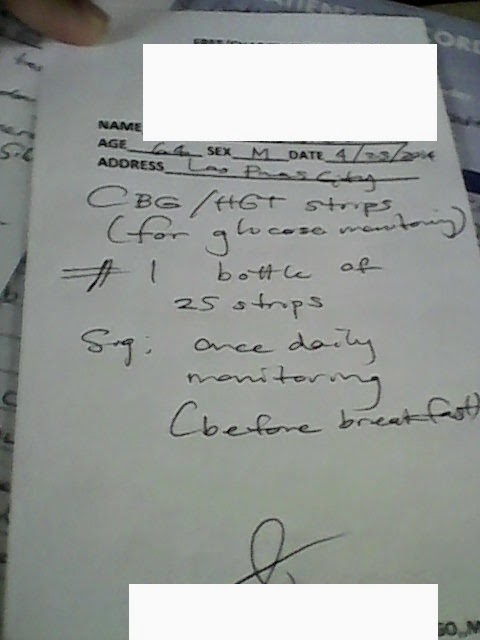 NAME
AGE 64 SEX M DATE 4/23/2014
ADDRESS Las Pinas City
CBG/HGT strips
(for glucose monitoring)
# 1 bottle of
25 strips
Sig: once daily
monitoring
(before breakfast)